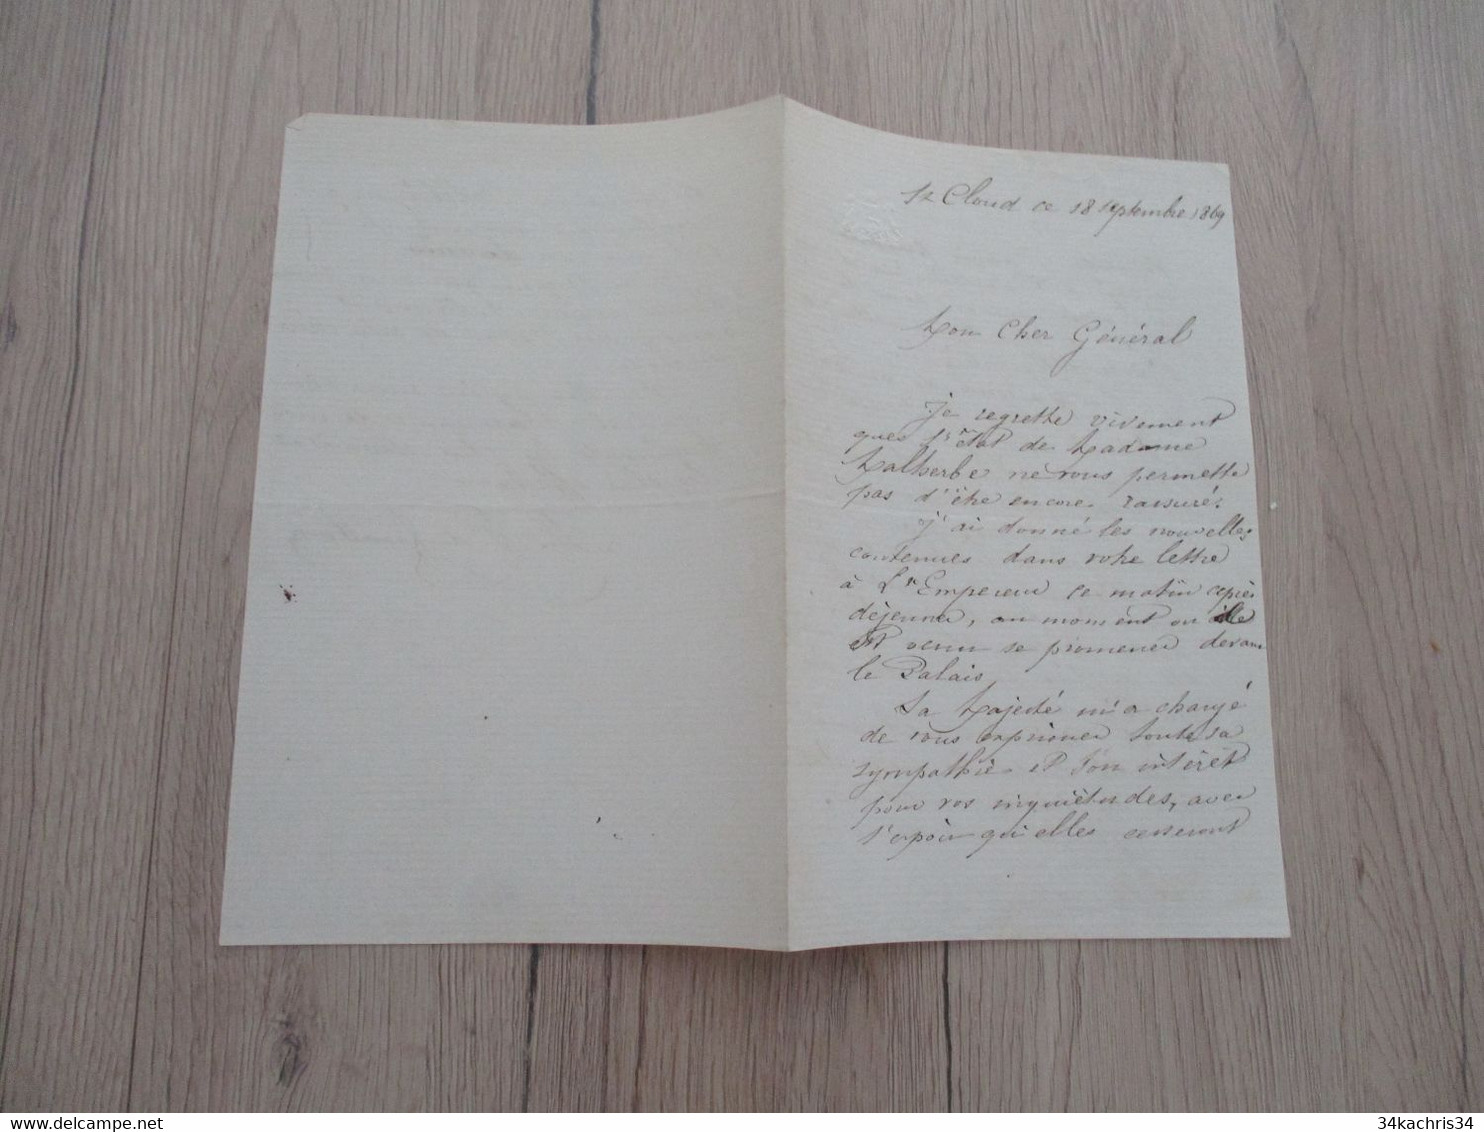 St Cloud ce 18 septembre 1869
Mon Cher Général
je regrette vivement
que l'état de Madame
Malherbe ne vous permette
pas d'être encore rassuré.
j'ai donné les nouvelles
contenues dans votre lettre
à L'Empereur ce matin après
déjeuner, au moment où il
est venu se promener devant
le Palais.
Sa Majesté m'a chargé
de vous exprimer toute sa
sympathie et son intérêt
pour vos inquiétudes, avec
l'espoir qu'elles cesseront
delcampe.net
34kachris34